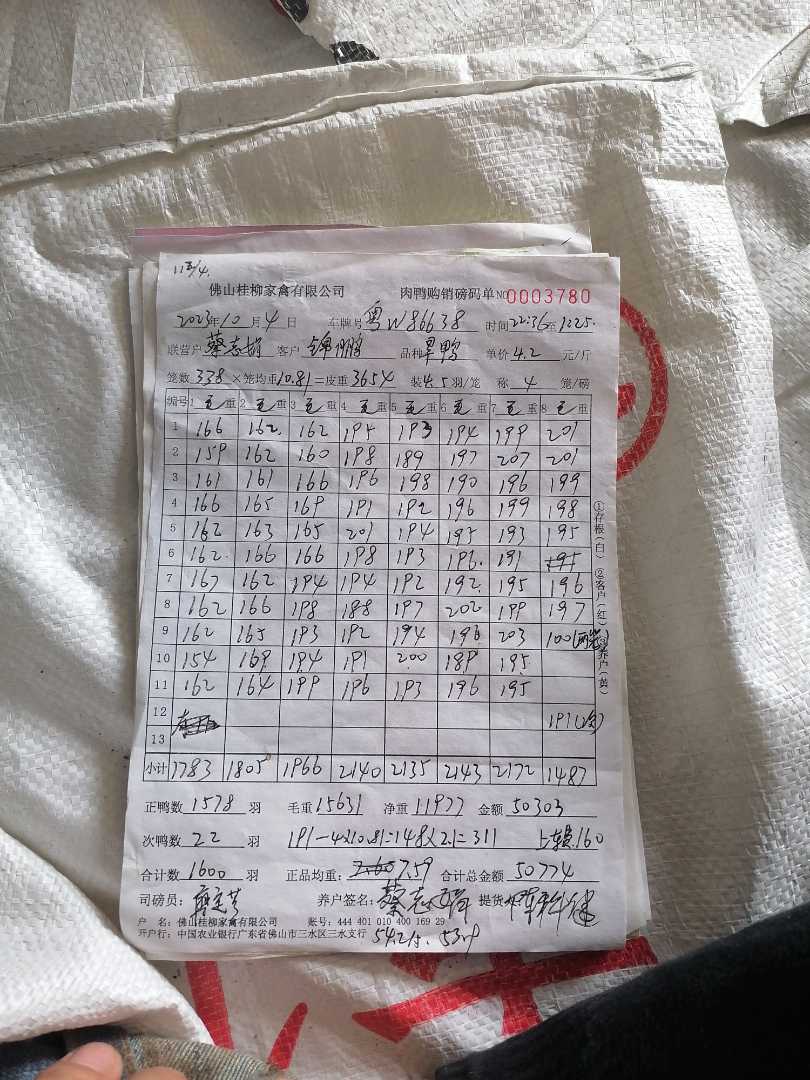 佛山桂柳家禽有限公司 肉鸭购销磅码单 NO 0003780
2023年10月4日 车牌号 粤W86638 时间 22:36至1225
联营户 蔡志娟 客户 锦鹏 品种 旱鸭 单价 4.2 元/斤
笼数 338 ×笼均重 10.81 =皮重 3654 装 4.5 羽/笼 称 4 笼/磅
编号 1 毛重 2 毛重 3 毛重 4 毛重 5 毛重 6 毛重 7 毛重 8 毛重
1 166 162 162 195 193 194 199 201
2 159 162 160 198 189 197 207 201
3 161 161 166 196 198 190 196 199
4 166 165 169 191 192 196 199 198
5 162 163 165 201 194 195 193 195
6 162 166 166 198 193 196 191 195
7 167 162 194 194 192 192 195 196
8 162 166 198 188 197 202 199 197
9 162 165 193 192 194 196 203 100(两笼)
10 154 169 194 191 200 189 195
11 162 164 199 196 193 196 195
12 191(次)
13
小计 1783 1805 1966 2140 2135 2143 2172 1487
正鸭数 1578 羽 毛重 15631 净重 11977 金额 50303
次鸭数 22 羽 191-4×10.81=148×2.1=311 160
合计数 1600 羽 正品均重: 7.59 合计总金额 50774
司磅员: 养户签名: 蔡志娟 提货
户 名: 佛山桂柳家禽有限公司 账号: 444 401 010 400 169 29
开户行: 中国农业银行广东省佛山市三水区三水支行
①存根(白) ②客户(红) ③养户(黄)